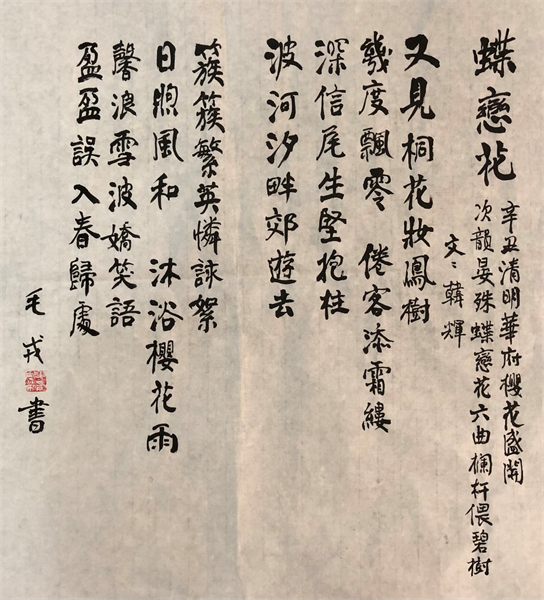 蝶戀花
辛丑清明華府櫻花盛開
次韻晏殊蝶戀花六曲欄杆偎碧樹
文文韓輝
又見桐花妝鳳樹
幾度飄零 倦客添霜縷
深信尾生堅抱柱
波河汐畔郊遊去
簇簇繁英憐詠絮
日煦風和 沐浴櫻花雨
馨浪雪波嬌笑語
盈盈誤入春歸處
毛戎 書